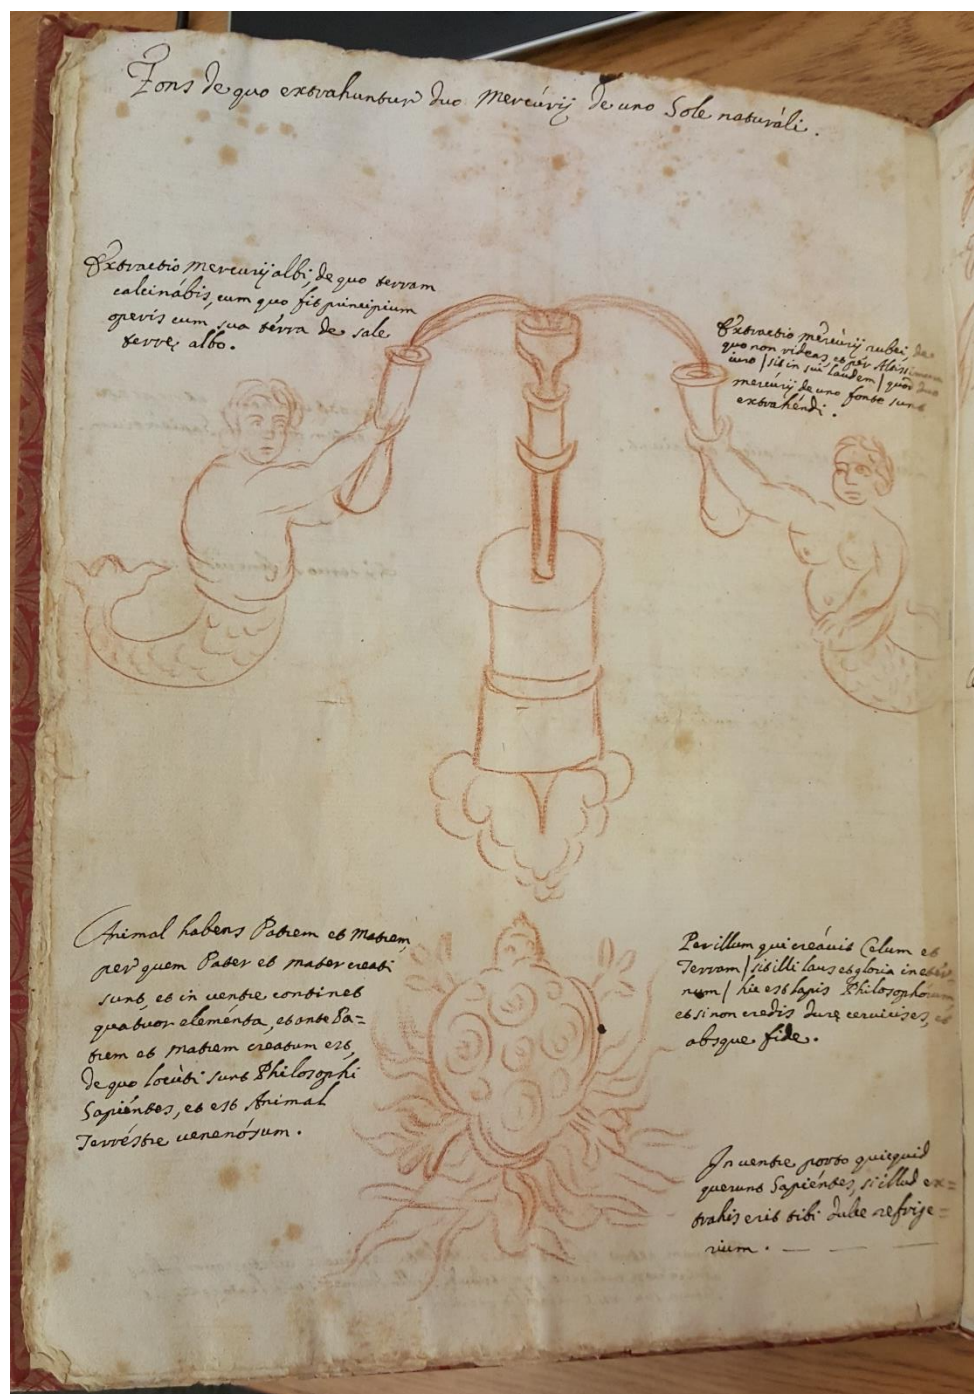 Fons de quo extrahuntur duo Mercúrij de uno Sole naturáli.
Extractio mercurij albi, de quo terram
calcinábis, cum quo fit principium
operis cum sua térra de sale
terrę albo.
Extractio mercúrij rubei, de
quo non videas, et pér Altissimum
iuro / sit in sui laudem / quod duo
mercúrij de uno fonte sunt
extrahéndi.
Animal habens Patrem et Matrem,
per quem Pater et mater creati
sunt, et in uentre continet
quatuor eleménta, et ante Pa=
trem et Matrem creatum est,
de quo locúti sunt Philosophi
Sapiéntes, et est Animal
Terréstre uenenósum.
Per illum qui creáuit Celum et
Terram / sit illi laus et gloria in etér=
num / hic est lapis Philosophórum
et si non credis durę ceruicis es, et
absque fide.
In uentre porto quicquid
querunt Sapiéntes, si illud ex=
trahis erit tibi dulce refrige=
rium. — — —